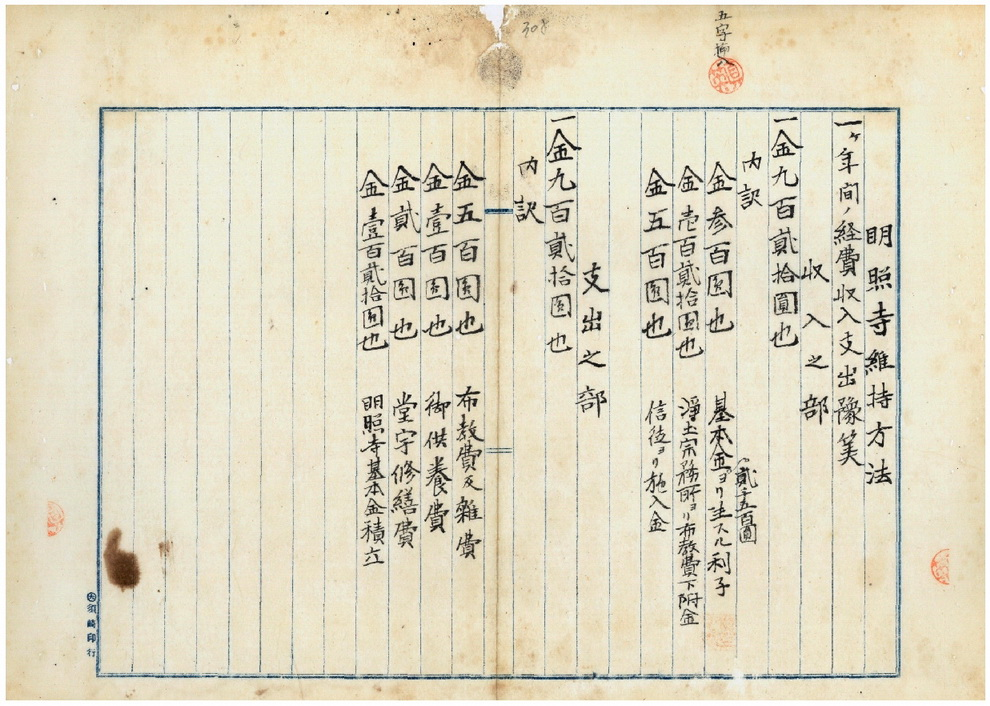 308
五字挿入
明照寺維持方法
一ヶ年間ノ経費収入支出豫筭
収入之部
一金九百貳拾圓也
内訳
金参百圓也 基本金ヨリ生スル利子
貳千五百圓
金壱百貳拾圓也 浄土宗務所ヨリ布教費下附金
金五百圓也 信徒ヨリ施入金
支出之部
一金九百貳拾圓也
内訳
金五百圓也 布教費及雑費
金壹百圓也 御供養費
金貳百圓也 堂宇修繕費
金壹百貳拾圓也 明照寺基本金積立
須崎印行